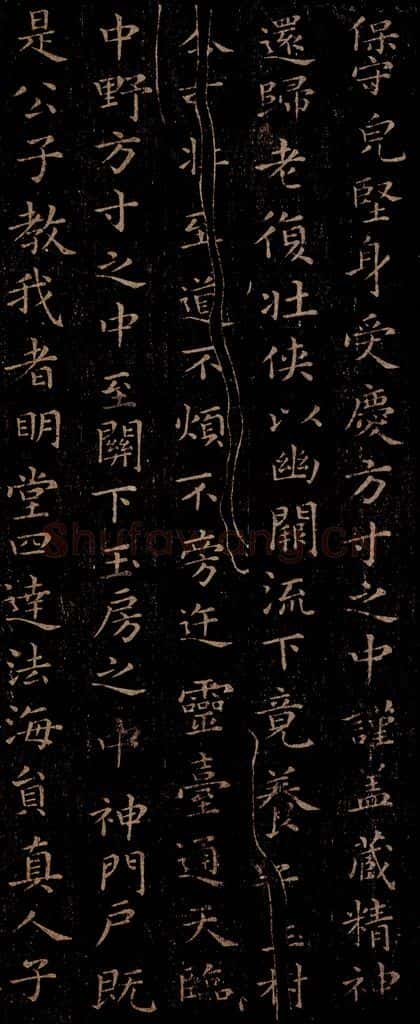 保守皃堅身受慶方寸之中謹盖藏精神
還歸老復壯俠以幽闕流下竟養村
壯至道不煩不旁迕靈臺通天臨
中野方寸之中至關下玉房之中神門戶既
是公子教我者眀堂四達法海員真人子
Shufawang.cn